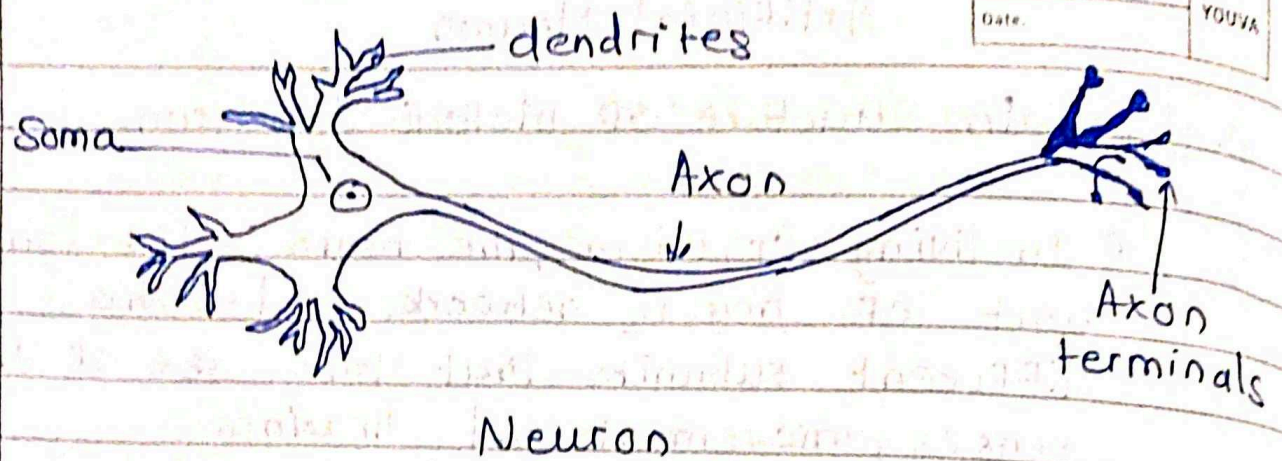 Date.
YOUVA
dendrites
Soma
Axon
Axon
terminals
Neuron